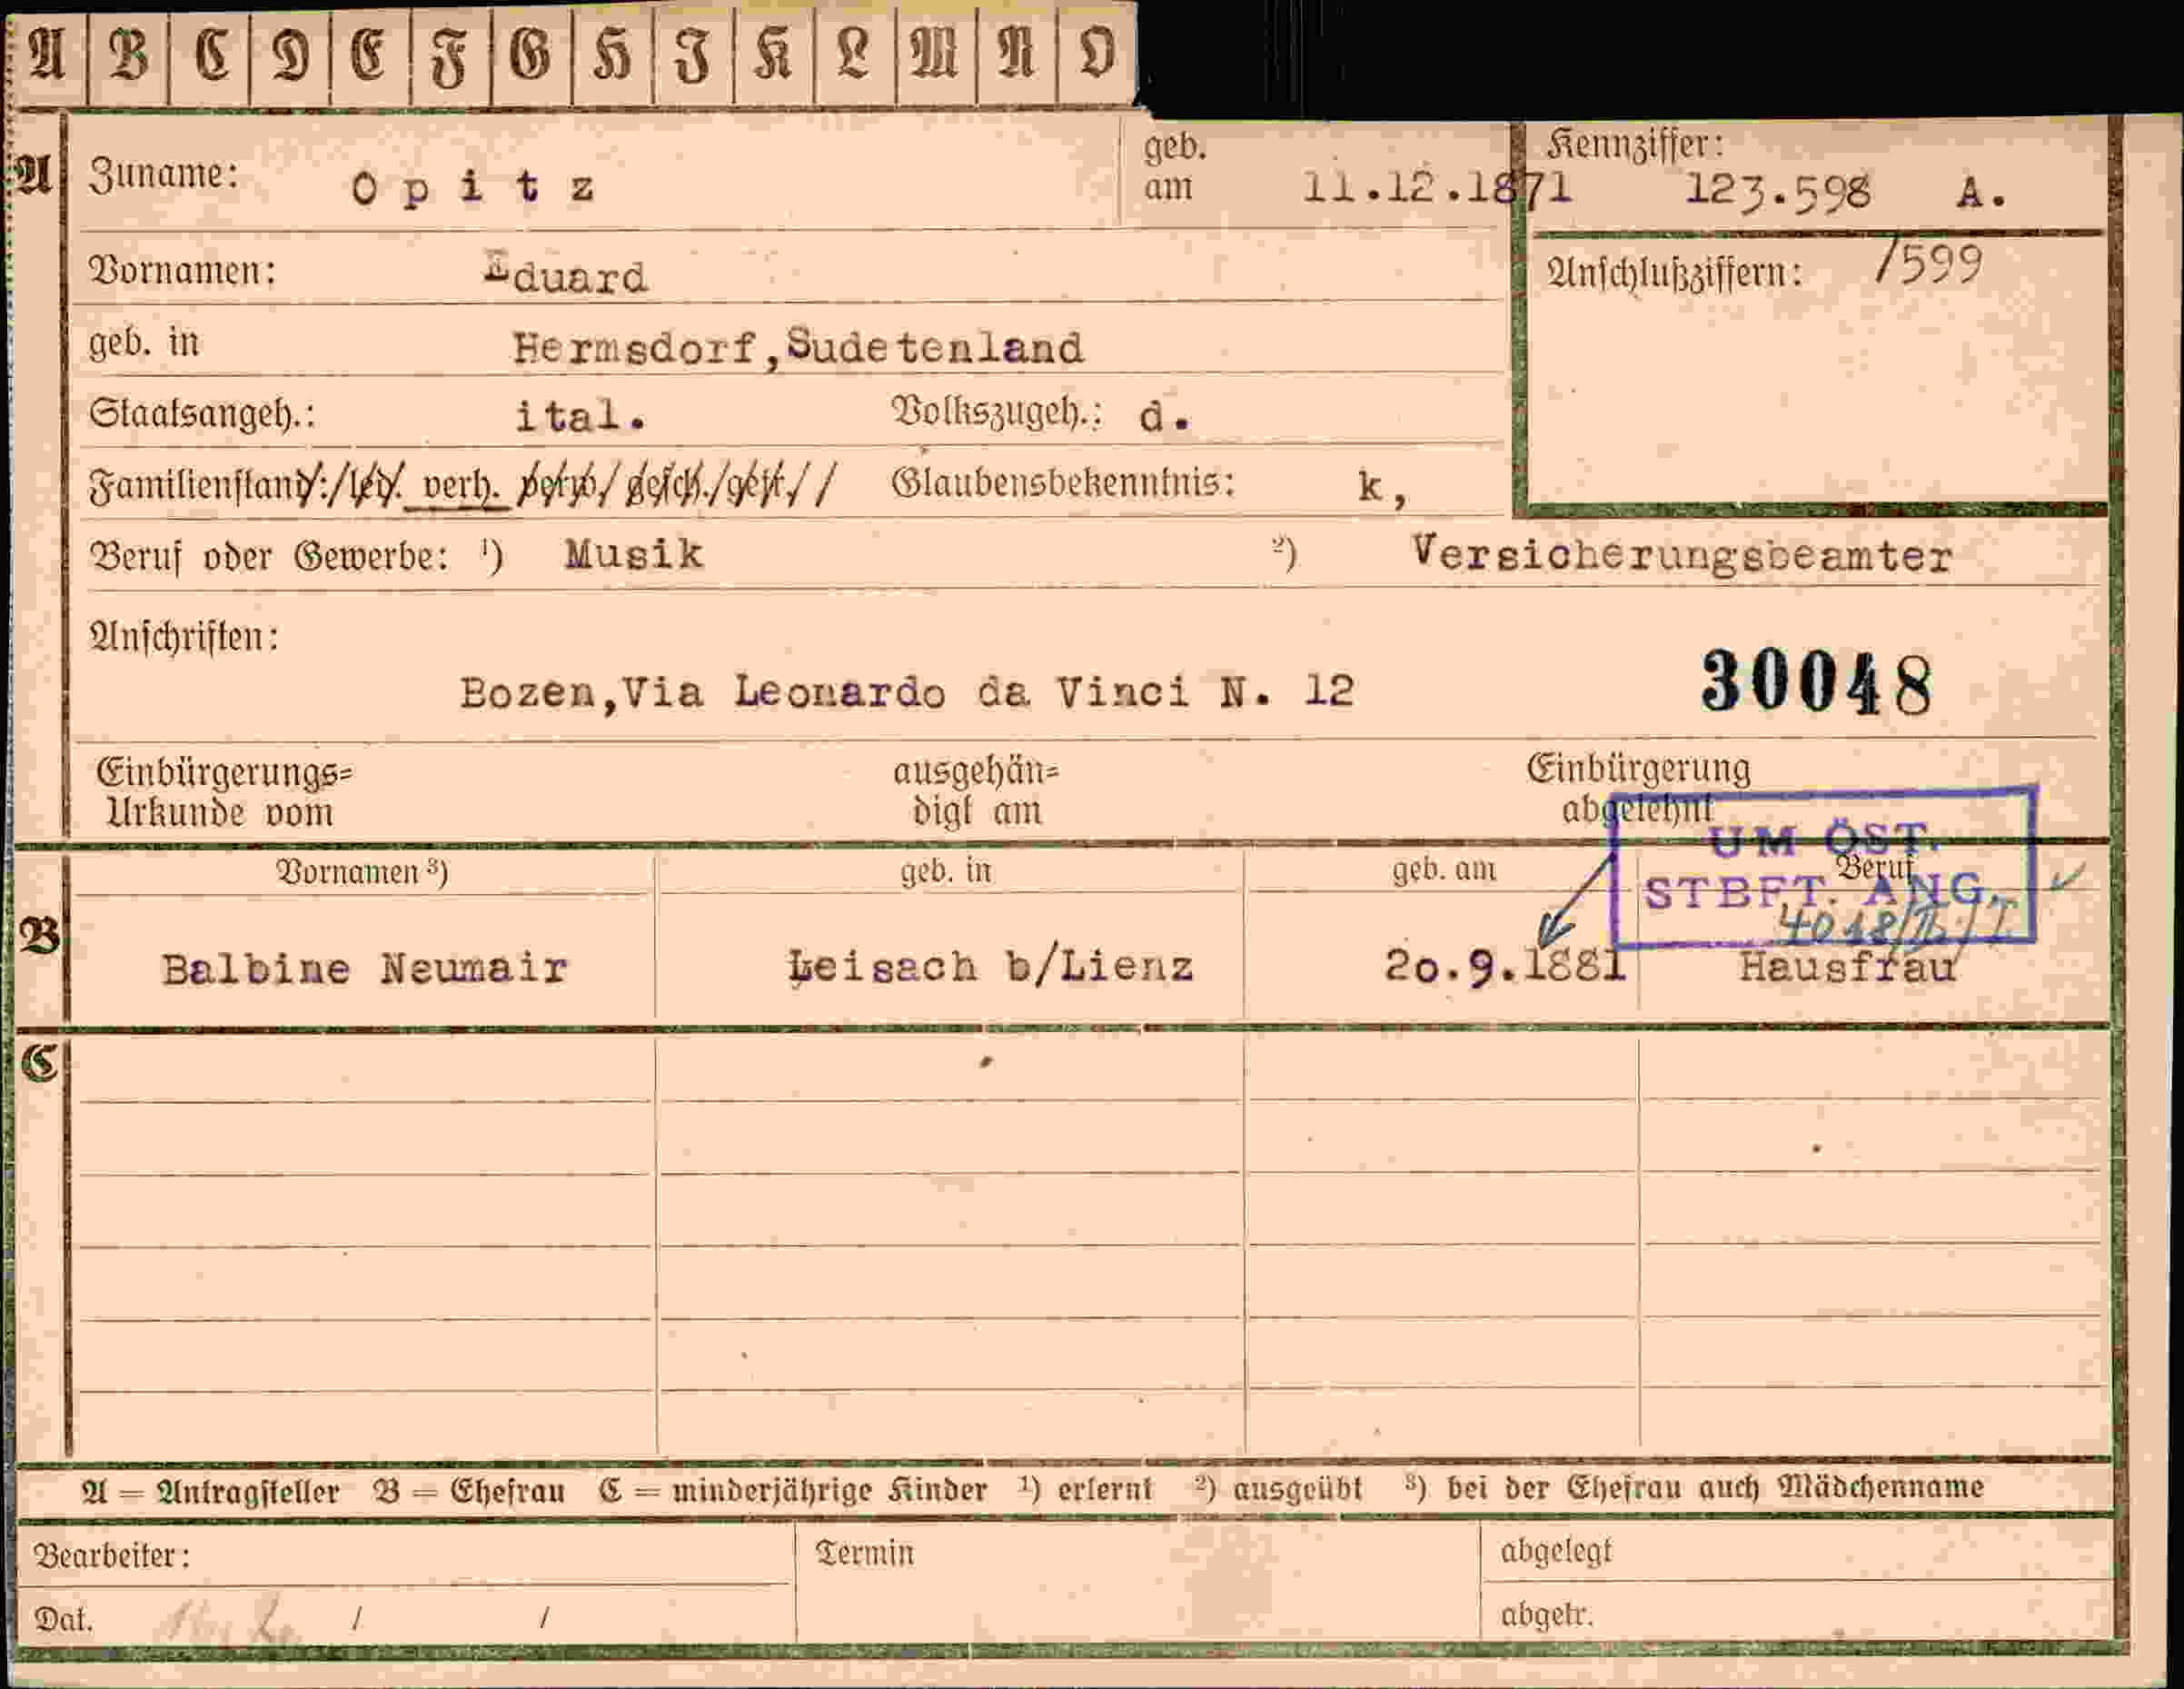 A B C D E F G H I K L M N O
A Zuname: Opitz geb. am 11.12.1871 Kennziffer: 123.598 A.
Vornamen: Eduard Anschlußziffern: /599
geb. in Hermsdorf,Sudetenland
Staatsangeh.: ital. Volkszugeh.: d.
Familienstand: led. verh. verw. gesch. getr. Glaubensbekenntnis: k,
Beruf oder Gewerbe: ¹) Musik ²) Versicherungsbeamter
Anschriften:
Bozen,Via Leonardo da Vinci N. 12 30048
Einbürgerungs= ausgehän= Einbürgerung
Urkunde vom digt am abgelehnt
UM ÖST.
STBFT. ANG.
Vornamen ³) geb. in geb. am Beruf
B Balbine Neumair Leisach b/Lienz 2o.9.1881 Hausfrau
C
A = Antragsteller B = Ehefrau C = minderjährige Kinder ¹) erlernt ²) ausgeübt ³) bei der Ehefrau auch Mädchenname
Bearbeiter: Termin abgelegt
Dat. / / abgetr.